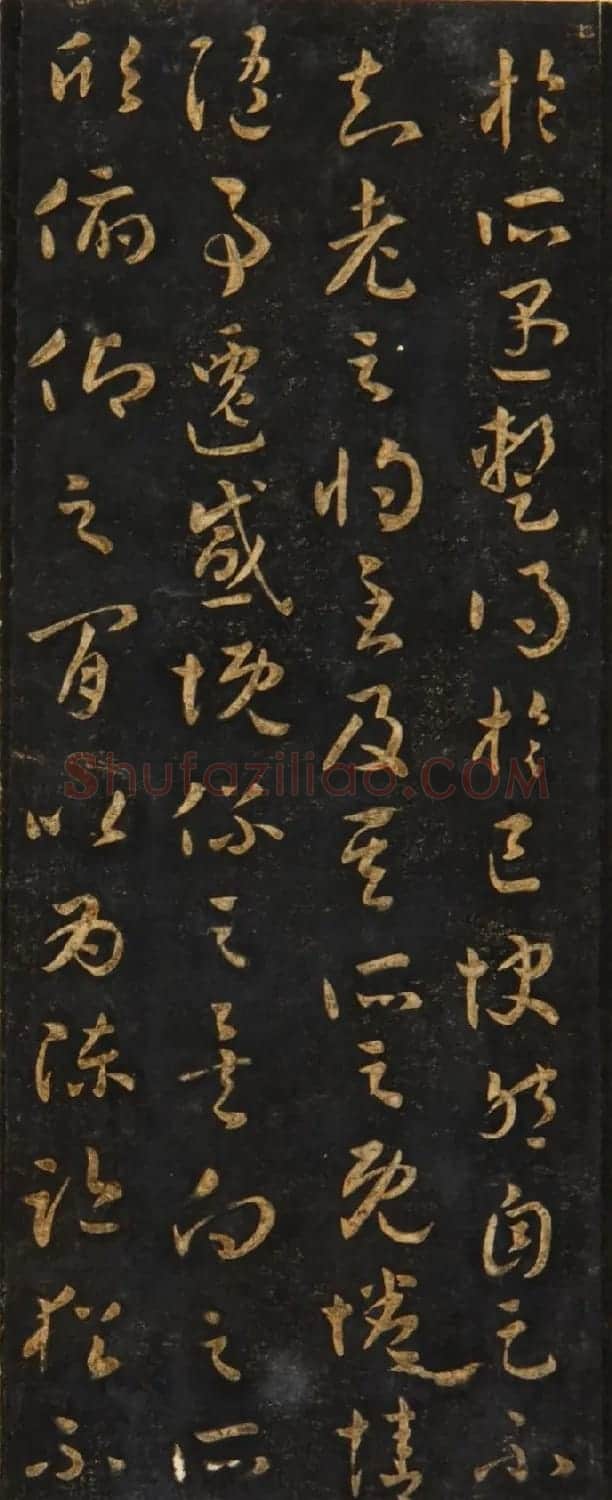 於所遇暫得於己快然自足不
知老之將至及其所之既惓情
隨事遷感慨係之矣向之所
欣俯仰之閒以為陳跡猶不
Shufaziliao.COM